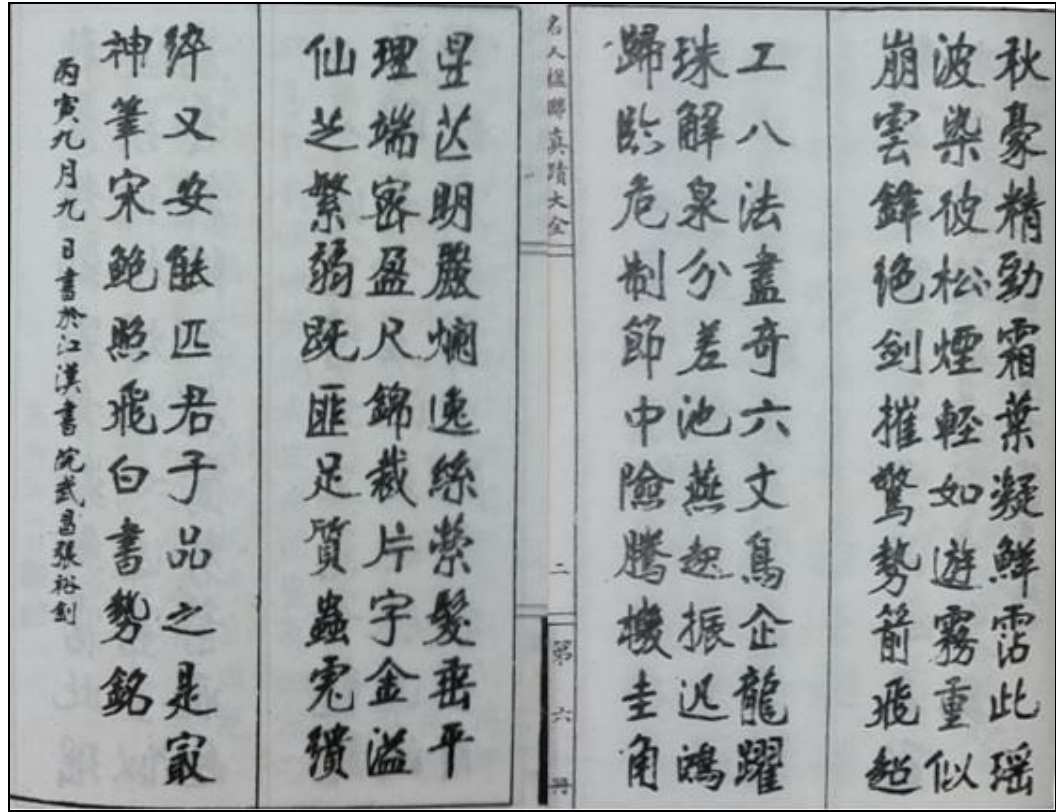 秋豪精勁霜葉凝鮮霑此瑶
波染彼松煙輕如遊霧重似
崩雲鋒絕劍摧驚勢箭飛超
工八法盡奇六文鳥企龍躍
珠解泉分差池燕起振迅鴻
歸臨危制節中險騰機圭角
名人楹聯真蹟大全 二 第六冊
星芒明嚴爛逸絲縈髮垂平
理端密盈尺錦裁片字金溢
仙芝繁弱既匪足質蟲虎瑣
碎又安能匹君子品之是冣
神筆宋鮑照飛白書勢銘
丙寅九月九日書於江漢書院武昌張裕釗